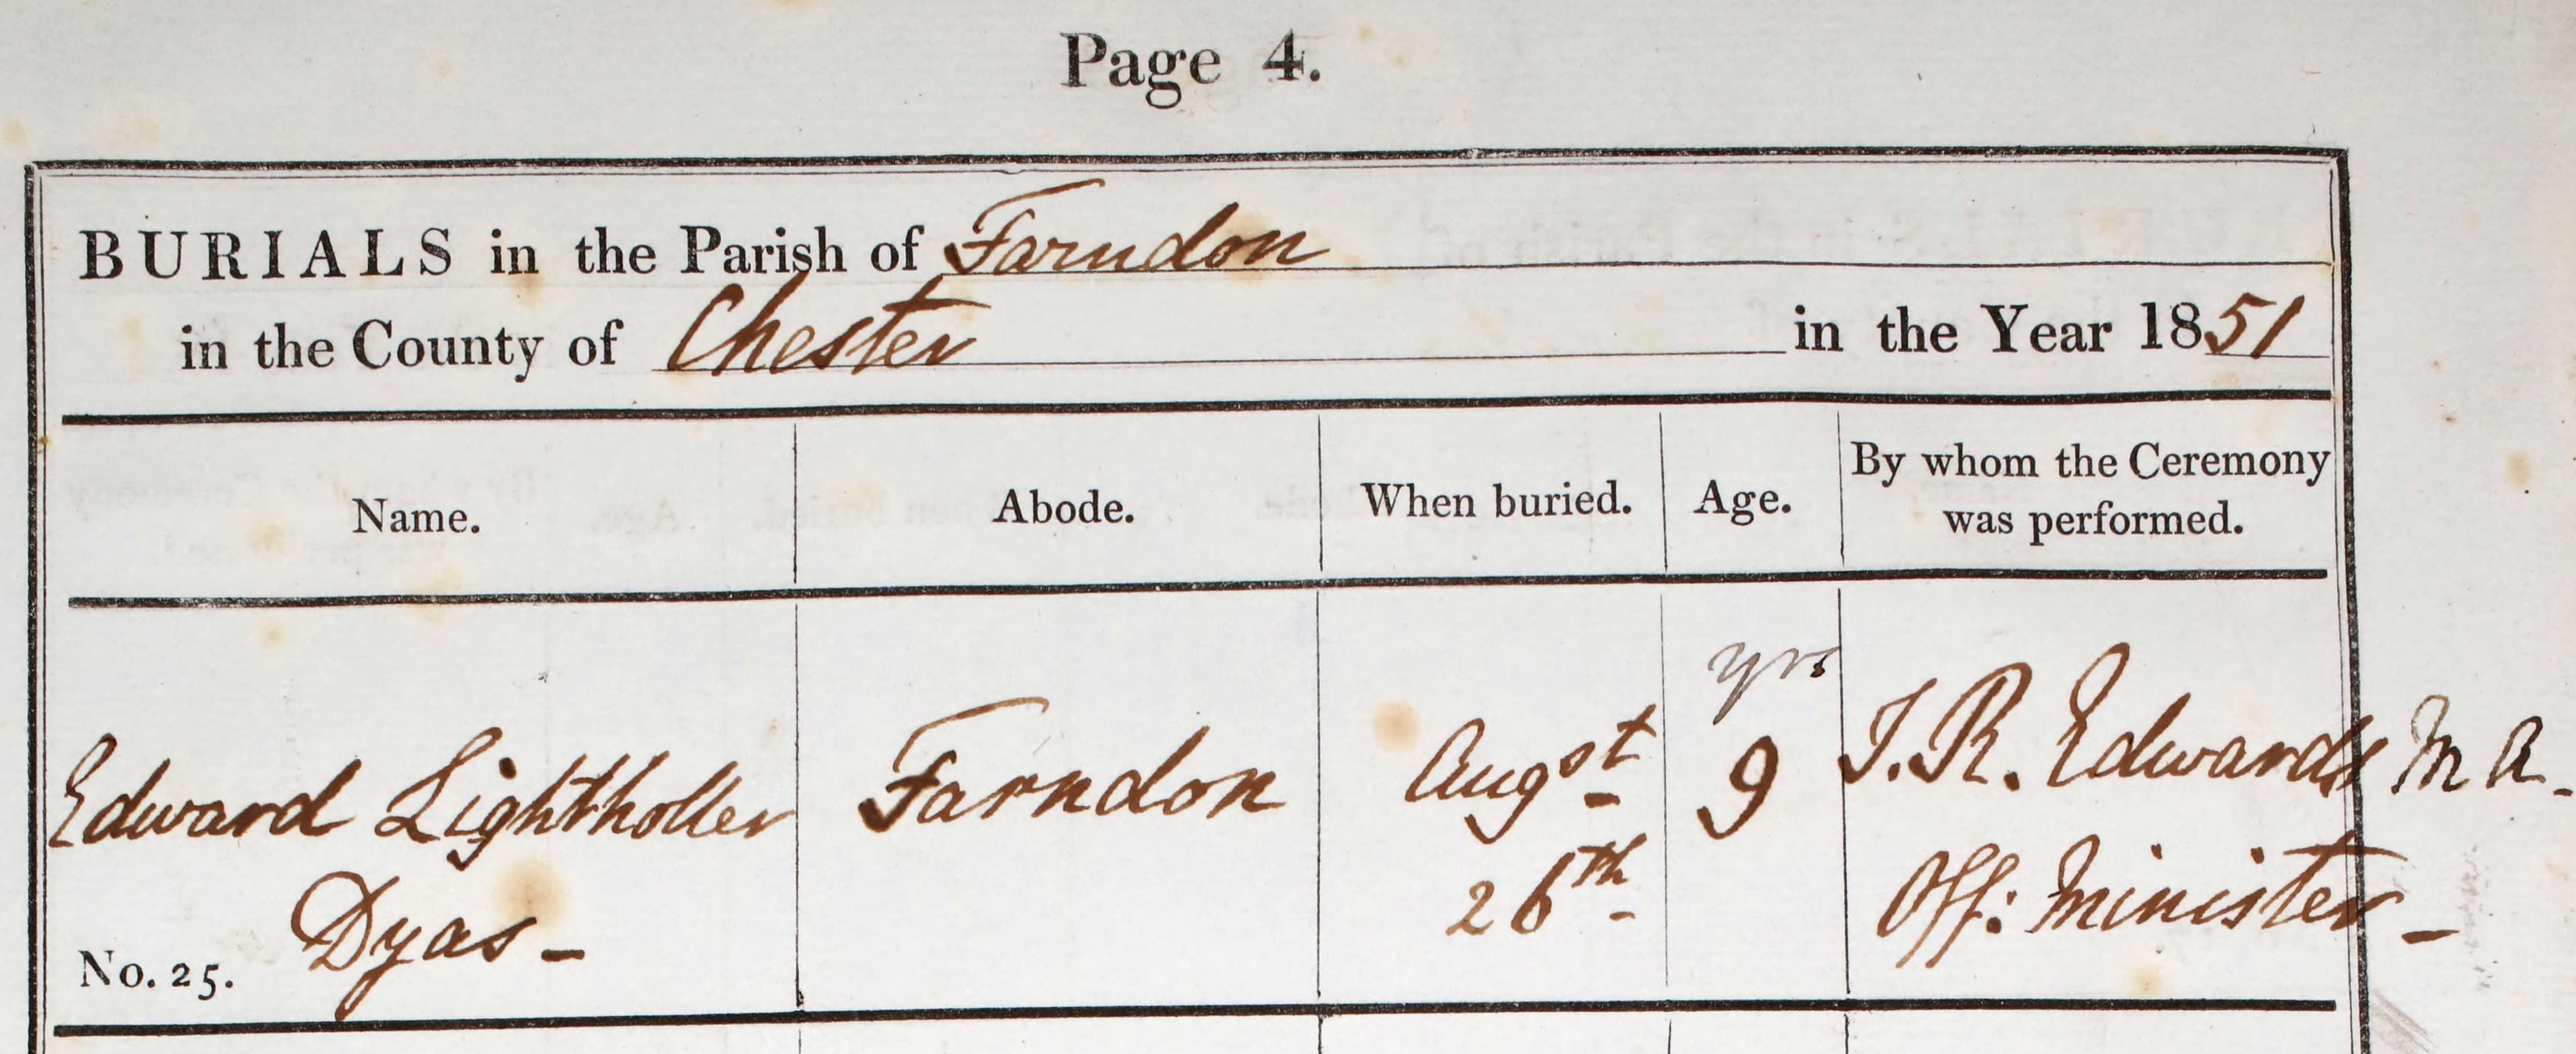 Page 4.
BURIALS in the Parish of Farndon
in the County of Chester in the Year 1851
Name. Abode. When buried. Age. By whom the Ceremony
was performed.
yrs
Edward Lighttholler Farndon Augst 9 J. R. Edwards M A.
Dyas - 26th Off: Minister -
No. 25.